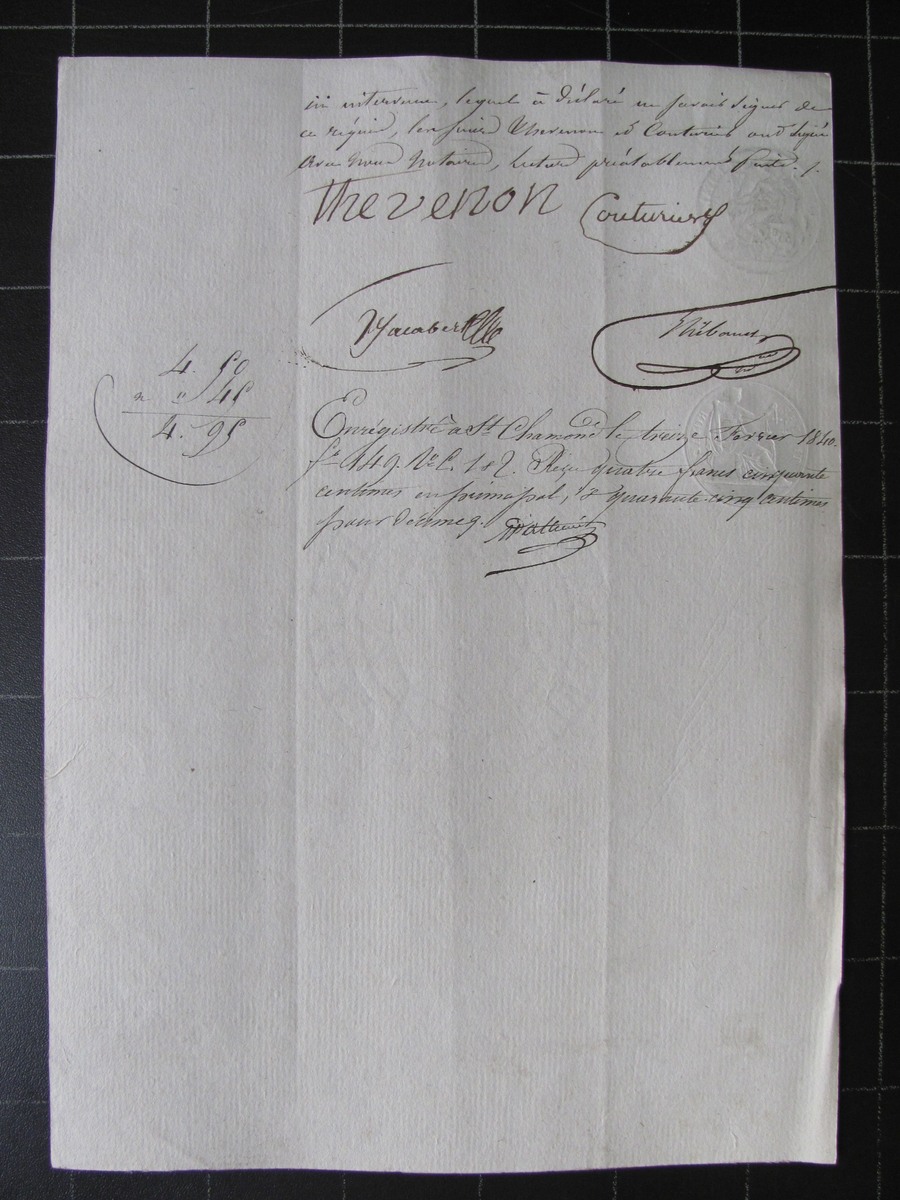 ici intervenu, lequel a déclaré ne savoir signer de
ce requis, les sieurs Thevenon et Couturier ont signé
avec nous Notaires, lecture préalablement faite ./.
thevenon Couturier
Thibaud
4. 50
" 45
4. 95
Enrégistré à St. Chamond le treize Fevrier 1840.
fo 149. Vo C. 1 & 2. Reçu quatre francs cinquante
centimes en principal, & quarante-cinq centimes
pour décimes.